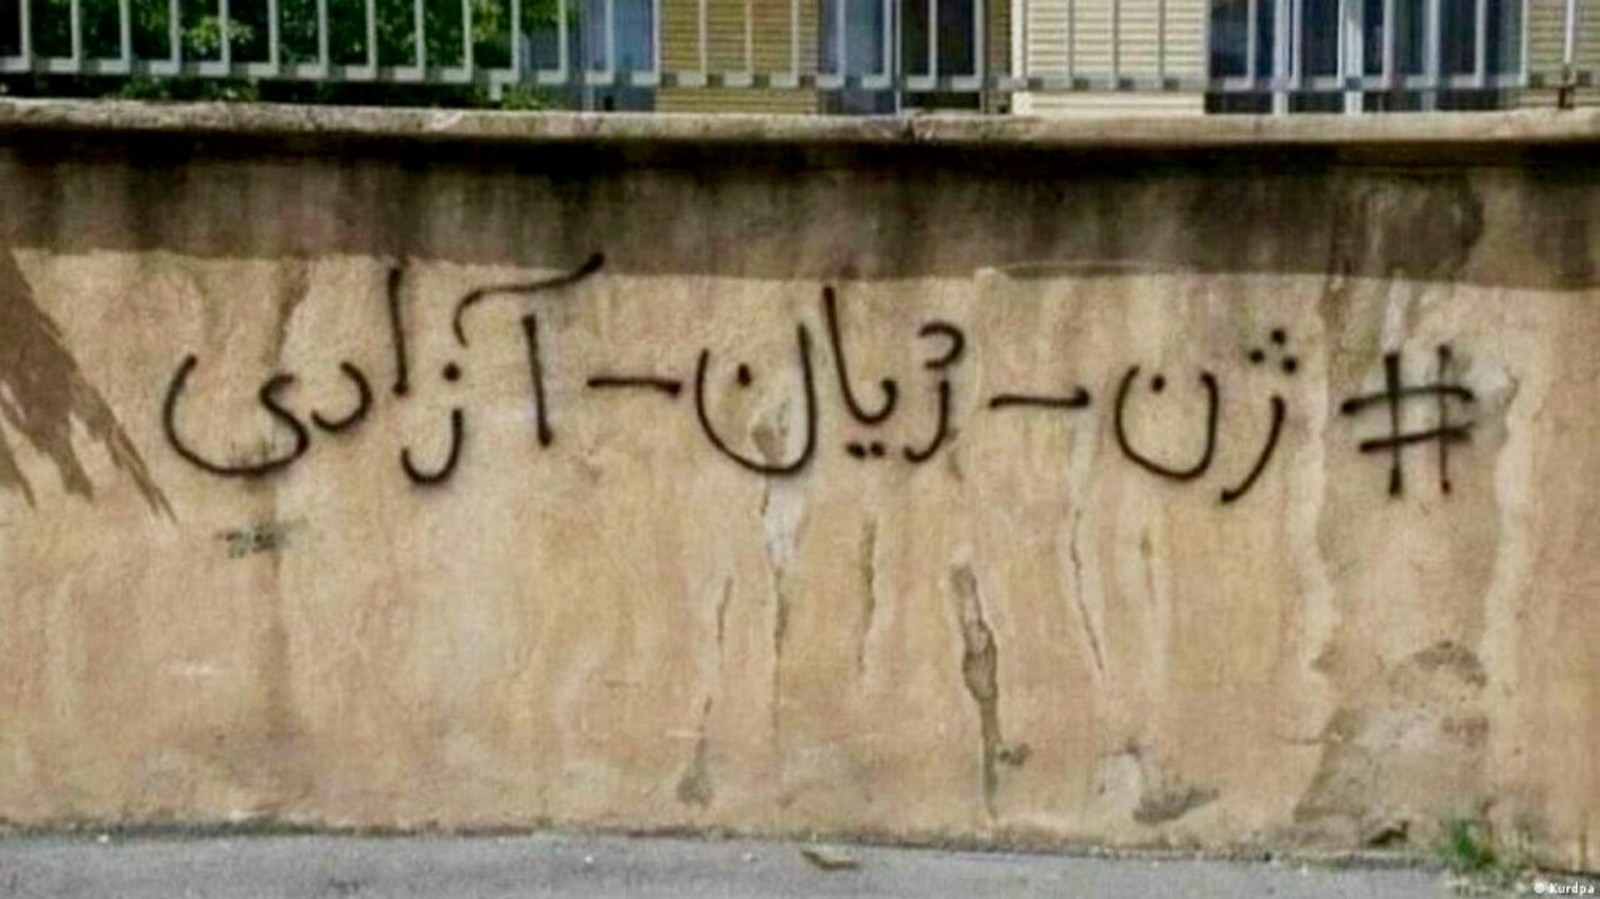 # ژن - ژیان - آزادی
© Kurdpa